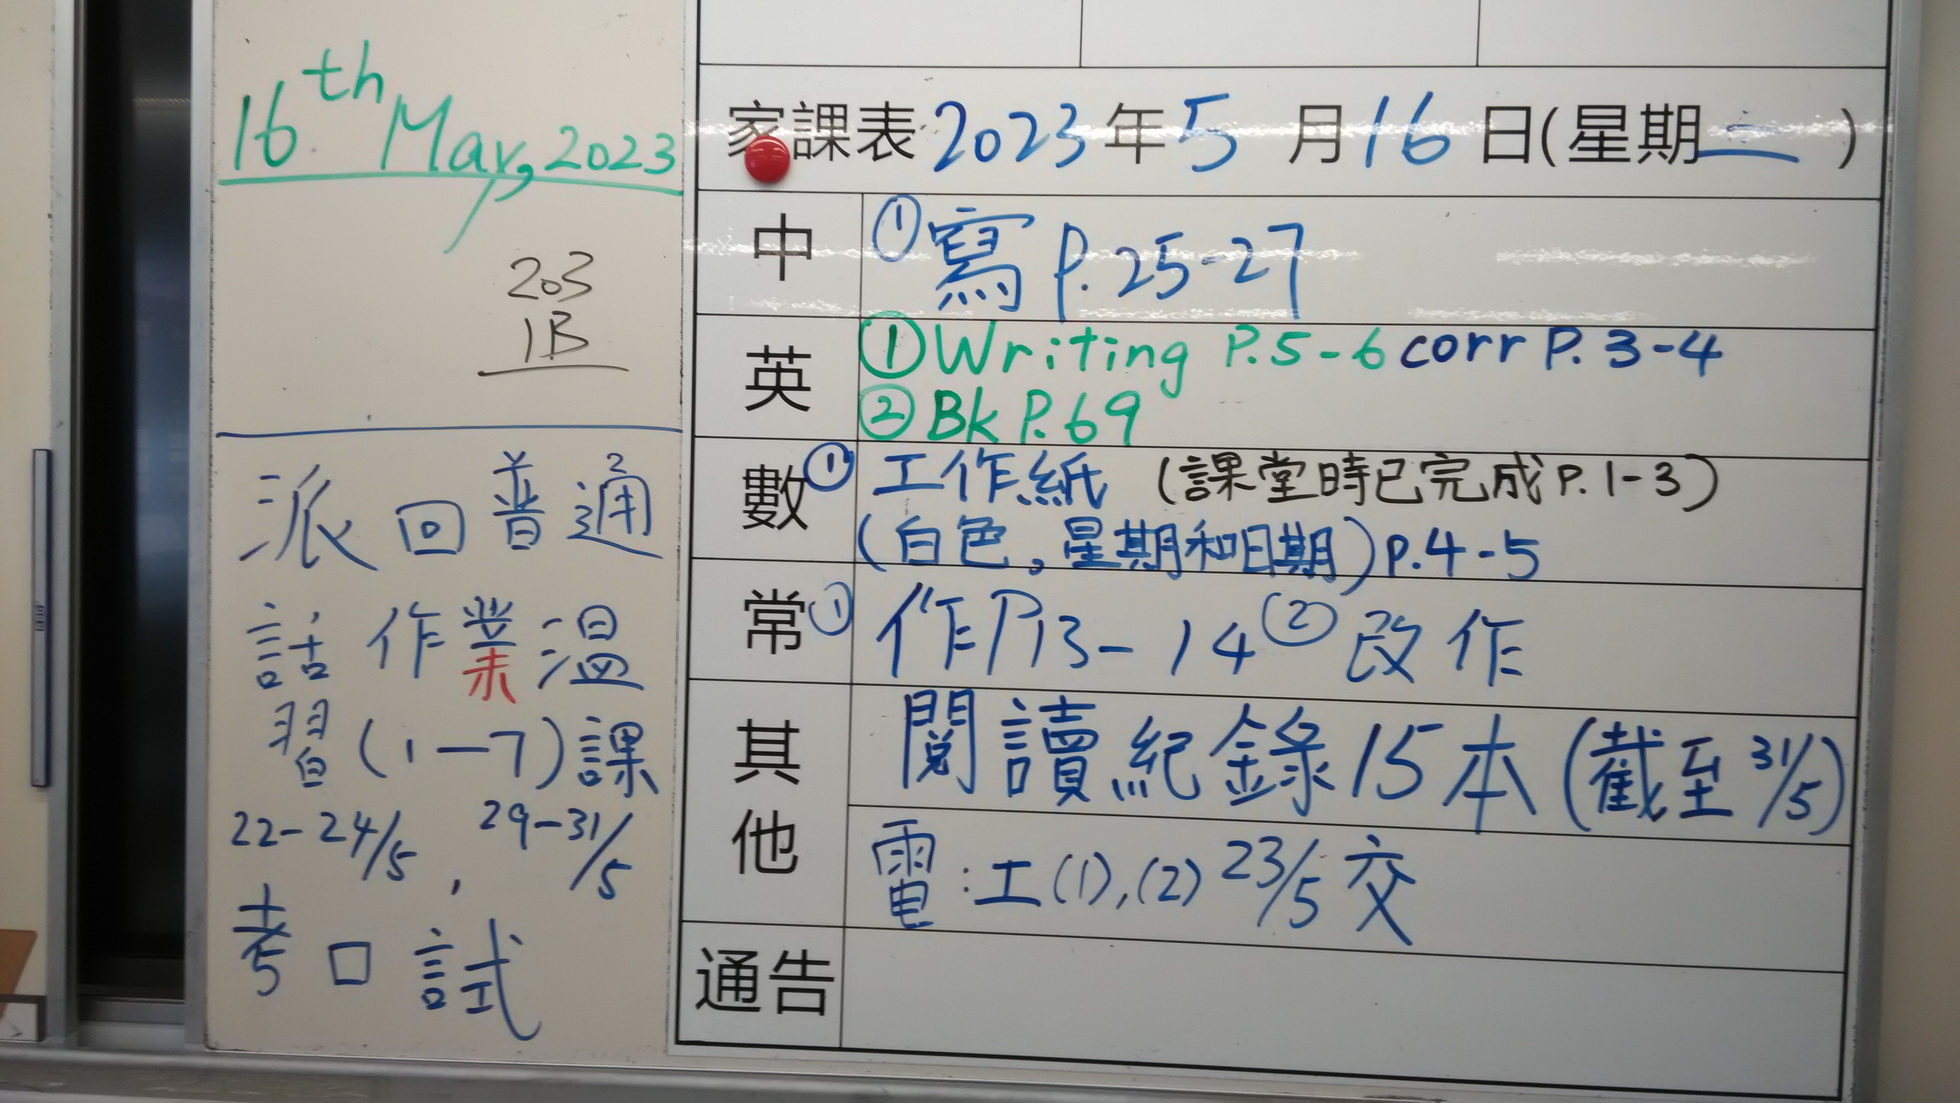 16th May, 2023
203
1B
派回普通
話作業溫
習(1-7)課
22-24/5, 29-31/5
考口試
家課表2023年5月16日(星期二)
中
①寫P.25-27
英
①Writing P.5-6 corr P.3-4
②Bk P.69
數
①工作紙 (課堂時已完成P.1-3)
(白色,星期和日期)P.4-5
常
①作P13-14②改作
其他
閱讀紀錄15本(截至31/5)
電:工(1),(2) 23/5交
通告